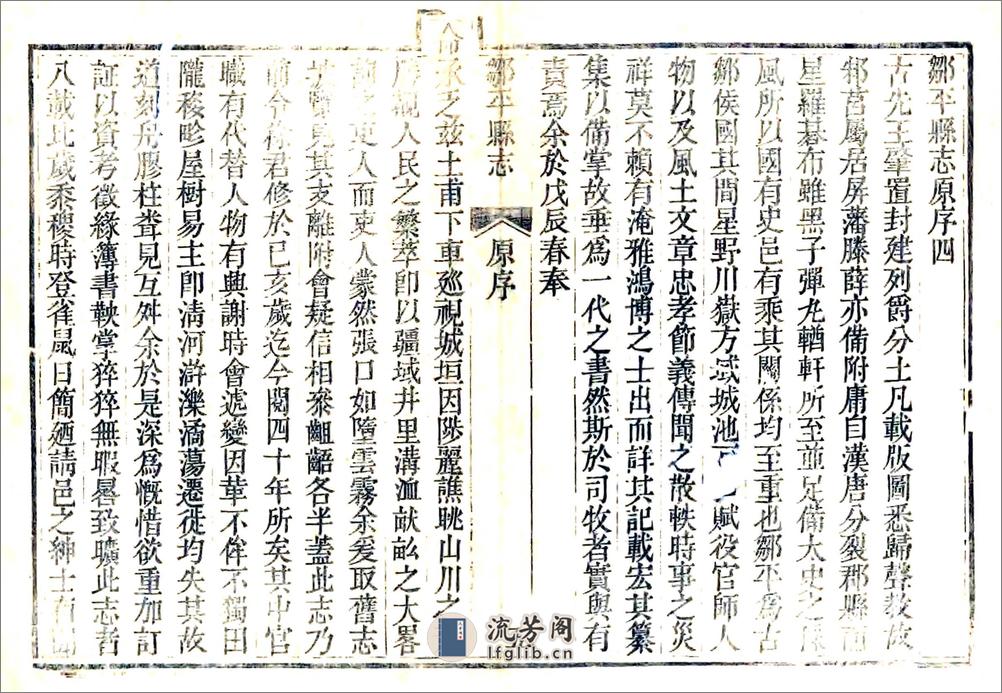 鄒平縣志原序四
古先王肇置封建列爵分土凡載版圖悉歸聲教故
邾莒屬居屏藩滕薛亦備附庸自漢唐分裂郡縣而
星羅碁布雖黑子彈丸輶軒所至並足備太史之採
風所以國有史邑有乘其關係均至重也鄒平爲古
鄒侯國其間星野川嶽方域城池賦役官師人
物以及風土文章忠孝節義傳聞之散軼時事之災
祥莫不賴有淹雅鴻博之士出而詳其記載宏其纂
集以備掌故垂爲一代之書然斯於司牧者實與有
責焉余於戊辰春奉
鄒平縣志
原序
命承乏兹土甫下車廵視城垣因陟麗譙眺山川之
觀人民之繁萃卽以疆域井里溝洫献畝之大畧
詢之吏人而吏人蒙然張口如墮雲霧余爰取舊志
覽見其支離附會疑信相叅齟齬各半蓋此志乃
前令徐君修於已亥歲迄今閱四十年所矣其中官
職有代替人物有興謝時會遞變因革不侔不獨田
隴稜畛屋樹易主卽清河滸灤潏蕩遷徙均失其故
道刻舟膠柱沓見互舛余於是深爲慨惜欲重加訂
証以資考徵緣簿書鞅掌猝猝無暇晷致曠此志者
八載比歲黍稷時登雀鼠日簡廼請邑之紳士有聞
流芳阁
lfglib.cn